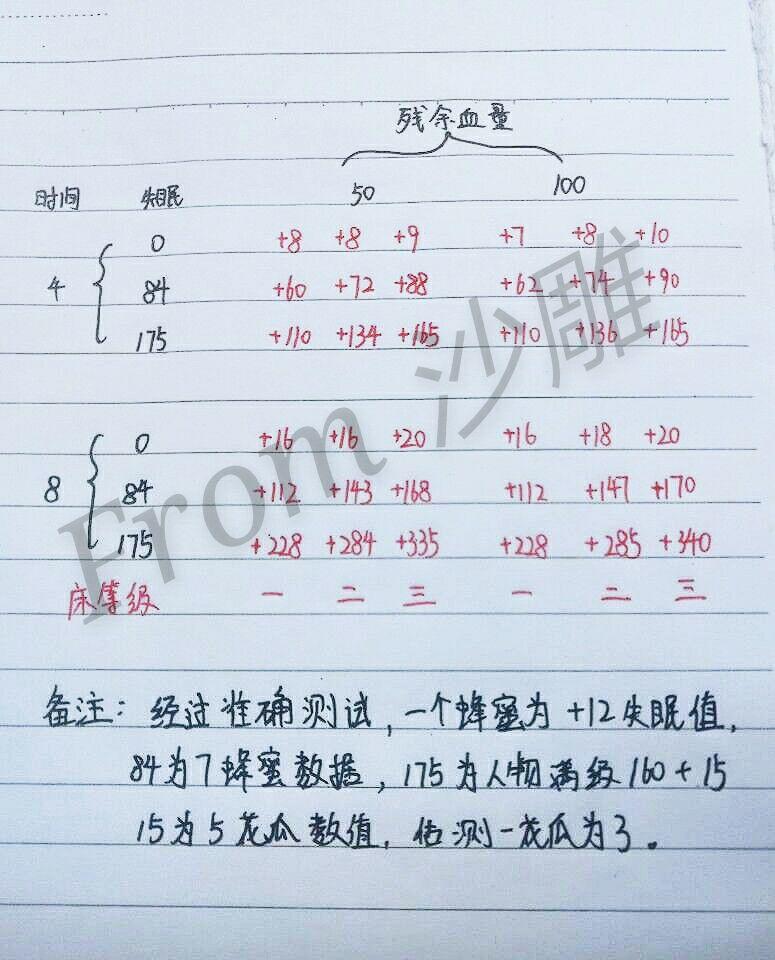 残余血量
时间 失眠 50 100
0 +8 +8 +9 +7 +8 +10
4 84 +60 +72 +88 +62 +74 +90
175 +110 +134 +165 +110 +136 +165
0 +16 +16 +20 +16 +18 +20
8 84 +112 +143 +168 +112 +147 +170
175 +228 +284 +335 +228 +285 +340
床等级 一 二 三 一 二 三
备注：经过准确测试，一个蜂蜜为+12失眠值，
84为7蜂蜜数据，175为人物满级160+15
15为5花瓜数值，估测一花瓜为3。
From 沙雕